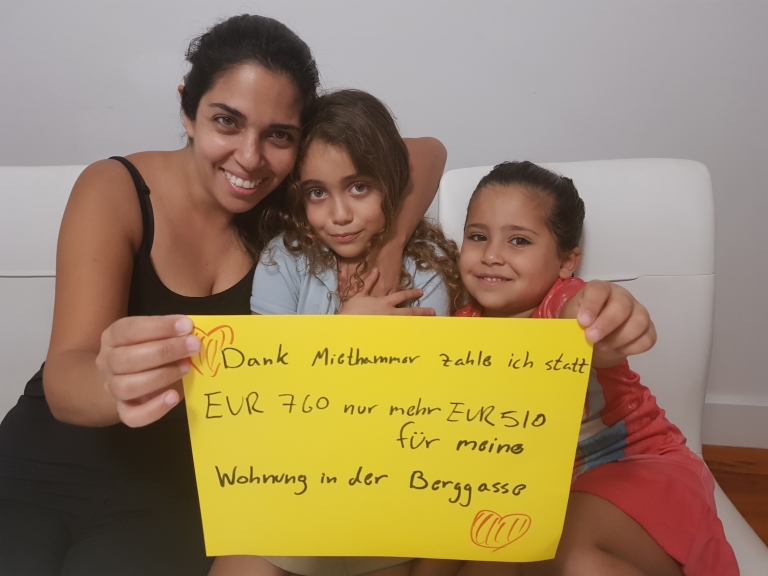 Dank Miethammer zahle ich statt
EUR 760 nur mehr EUR 510
für meine
Wohnung in der Berggasse